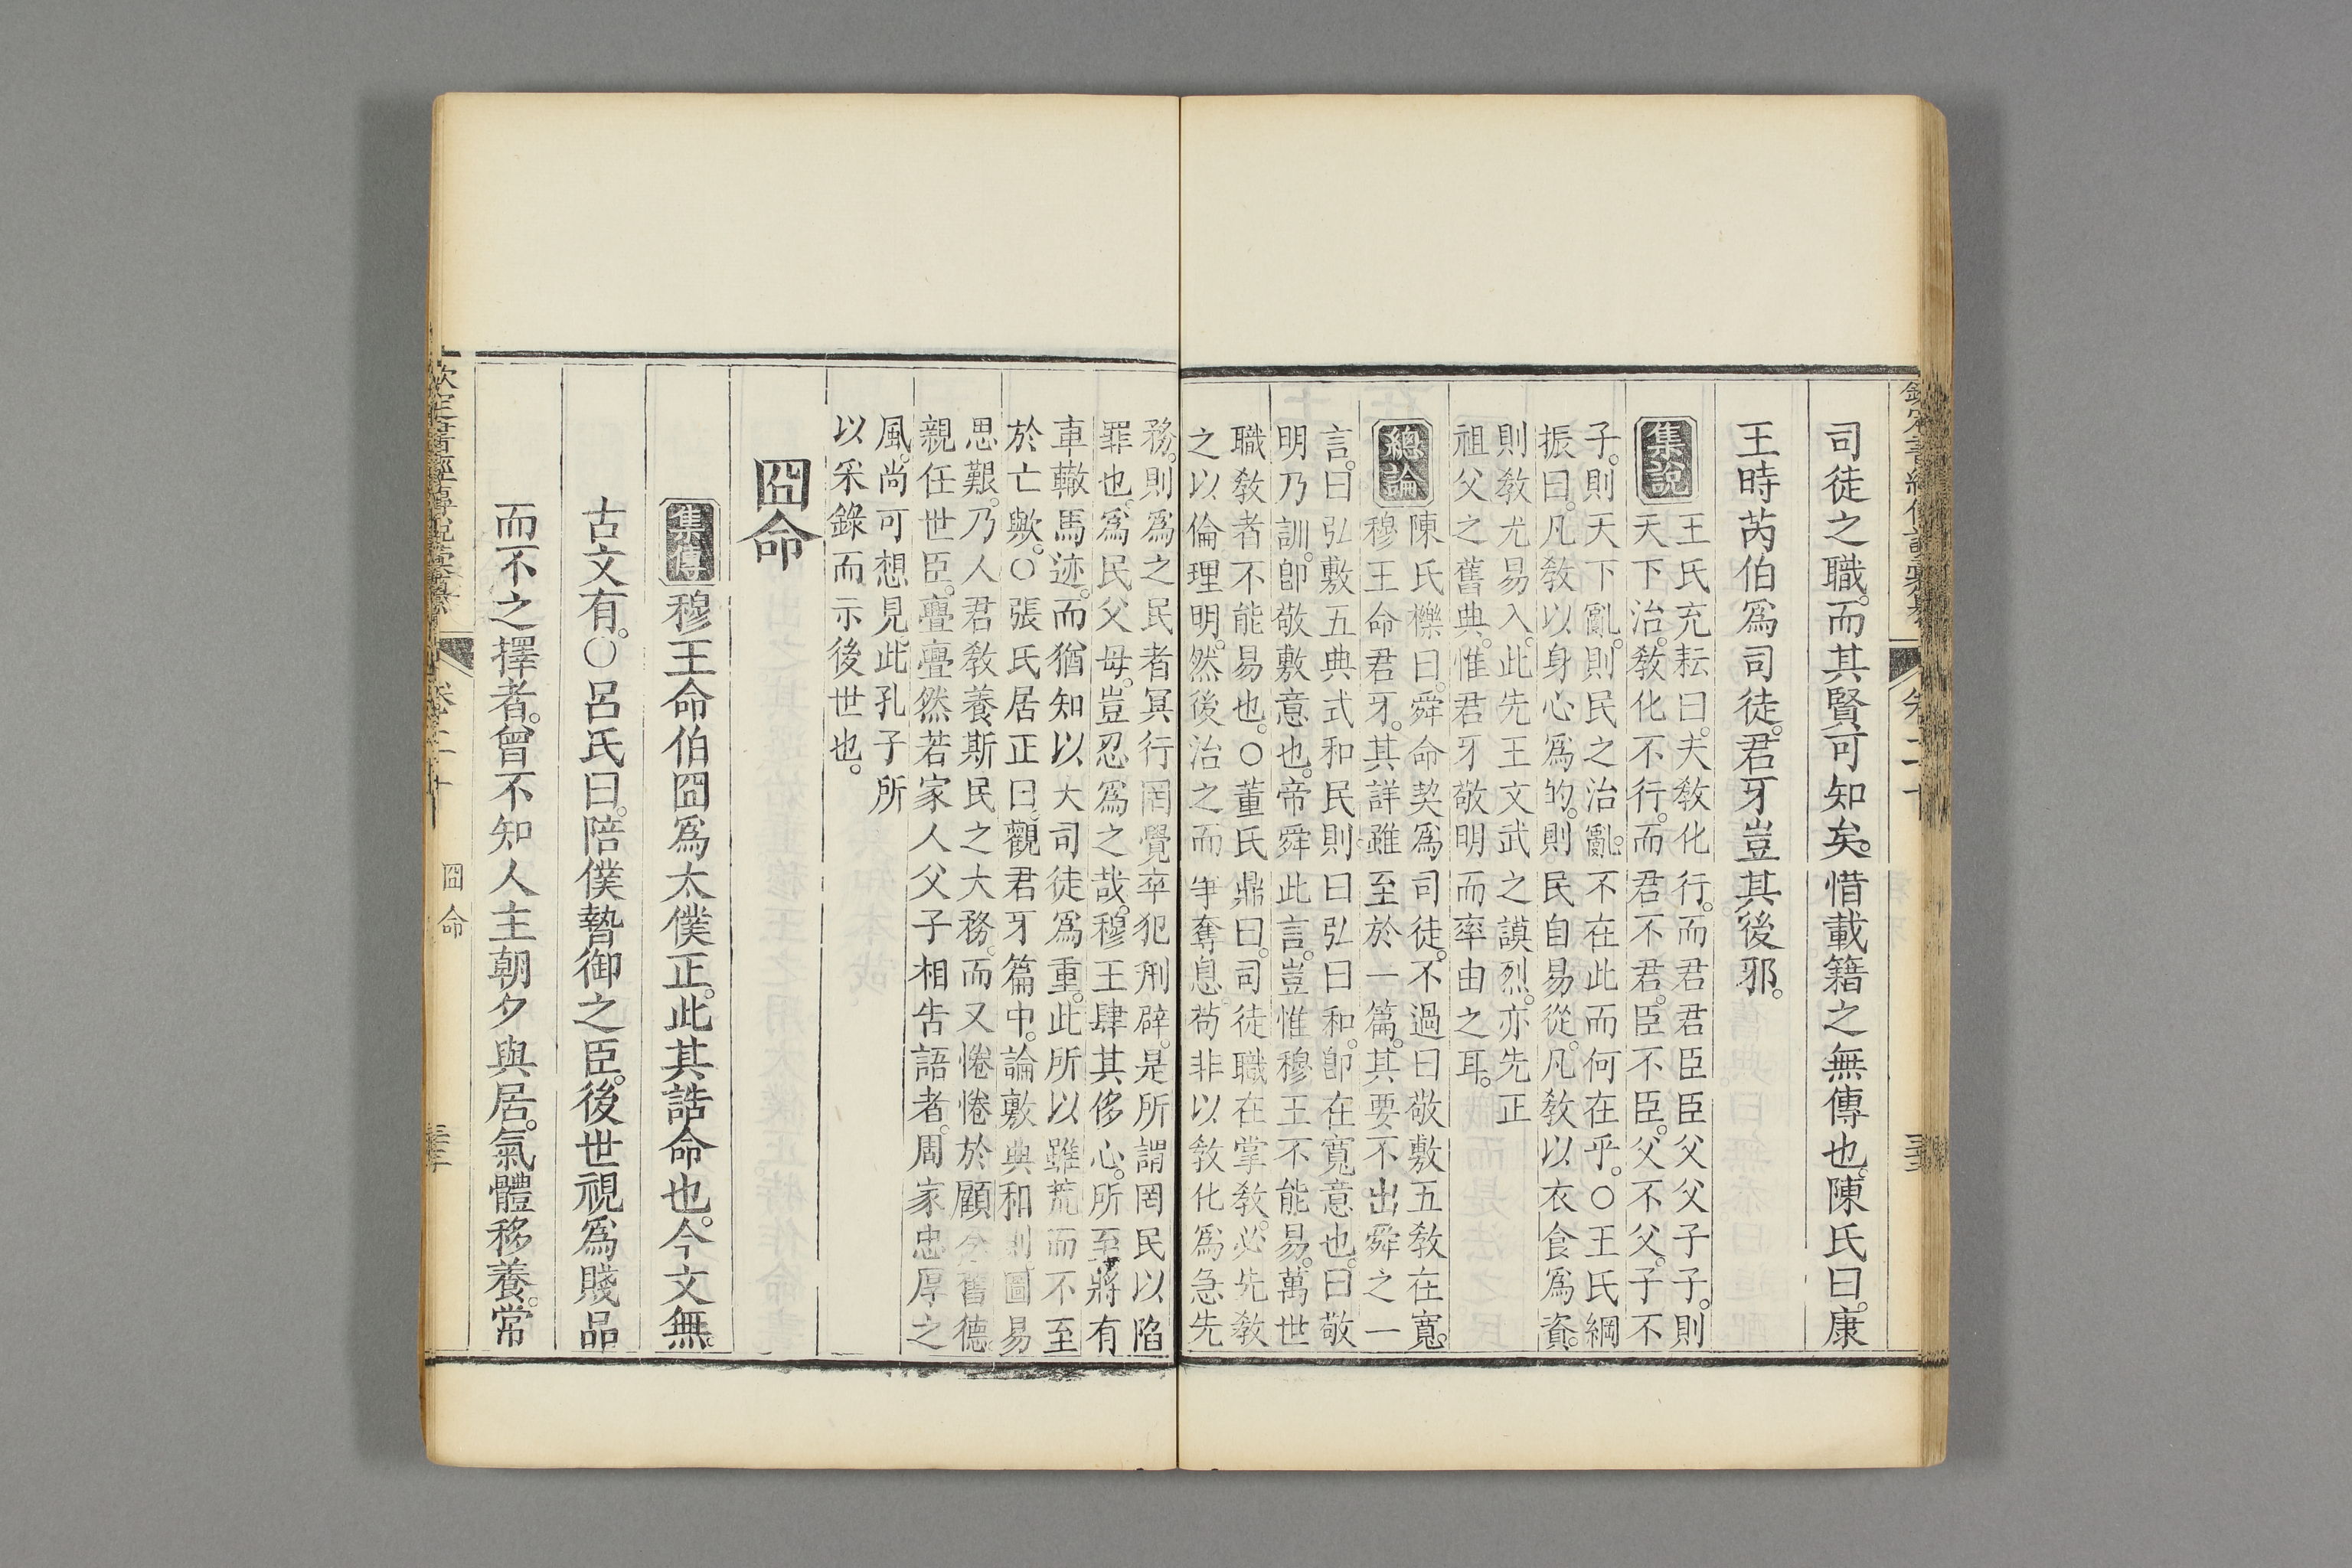 司徒之職。而其賢可知矣。惜載籍之無傳也。陳氏曰。康
王時芮伯爲司徒。君牙豈其後邪。
集說
王氏充耘曰。夫敎化行。而君君臣臣父父子子。則
天下治。敎化不行。而君不君。臣不臣。父不父。子不
子。則天下亂。則民之治亂。不在此而何在乎。○王氏綱
振曰。凡敎以身心爲的。則民自易從。凡敎以衣食爲資。
則敎尤易入。此先王文武之謨烈。亦先正
祖父之舊典。惟君牙敬明而率由之耳。
總論
陳氏櫟曰。舜命契爲司徒。不過曰敬敷五敎在寬。
穆王命君牙。其詳雖至於一篇。其要不出舜之一
言。曰弘敷五典式和民則曰弘曰和。卽在寬意也。曰敬
明乃訓。卽敬敷意也。帝舜此言。豈惟穆王不能易。萬世
職敎者不能易也。○董氏鼎曰。司徒職在掌敎。必先敎
之以倫理明。然後治之而爭奪息。苟非以敎化爲急先
務。則爲之民者冥行罔覺。卒犯刑辟。是所謂罔民以陷
罪也。爲民父母。豈忍爲之哉。穆王肆其侈心。所至將有
車轍馬迹。而猶知以大司徒爲重。此所以雖荒而不至
於亡歟。○張氏居正曰。觀君牙篇中。論敷典和則圖易
思艱。乃人君敎養斯民之大務。而又惓惓於顧念舊德。
親任世臣。亹亹然若家人父子相告語者。周家忠厚之
風。尚可想見。此孔子所
以采錄而示後世也。
冏命
集傳
穆王命伯冏爲太僕正。此其誥命也。今文無。
古文有。○呂氏曰。陪僕暬御之臣。後世視爲賤品
而不之擇者。曾不知人主朝夕與居。氣體移養。常
欽定書經傳說彙纂
卷二十
冏命